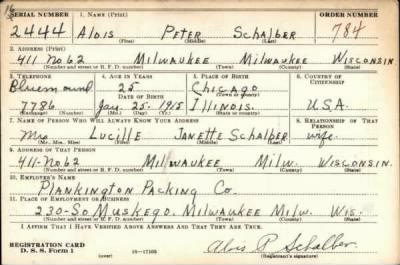 16
SERIAL NUMBER 1. NAME (Print) ORDER NUMBER
2444 Alois Peter Schalber 784
(First) (Middle) (Last)
2. ADDRESS (Print)
411 No. 62 Milwaukee Milwaukee Wisconsin
(Number and street or R. F. D. number) (Town) (County) (State)
3. TELEPHONE 4. AGE IN YEARS 5. PLACE OF BIRTH 6. COUNTRY OF CITIZENSHIP
Bluemound 25 Chicago
DATE OF BIRTH (Town or county)
7786 Jan. 25. 1915 Illinois. U.S.A.
(Exchange) (Number) (Mo.) (Day) (Yr.) (State or country)
7. NAME OF PERSON WHO WILL ALWAYS KNOW YOUR ADDRESS 8. RELATIONSHIP OF THAT PERSON
Mrs Lucille Janette Schalber wife.
(Mr., Mrs., Miss) (First) (Middle) (Last)
9. ADDRESS OF THAT PERSON
411-No. 62 Milwaukee Milw. Wisconsin.
(Number and street or R. F. D. number) (Town) (County) (State)
10. EMPLOYER'S NAME
Plankington Packing Co.
11. PLACE OF EMPLOYMENT OR BUSINESS
230-So Muskego. Milwaukee Milw. Wis.
(Number and street or R. F. D. number) (Town) (County) (State)
I AFFIRM THAT I HAVE VERIFIED ABOVE ANSWERS AND THAT THEY ARE TRUE.
REGISTRATION CARD
D. S. S. Form 1 (over) 16-17105 Alois P Schalber
(Registrant's signature)